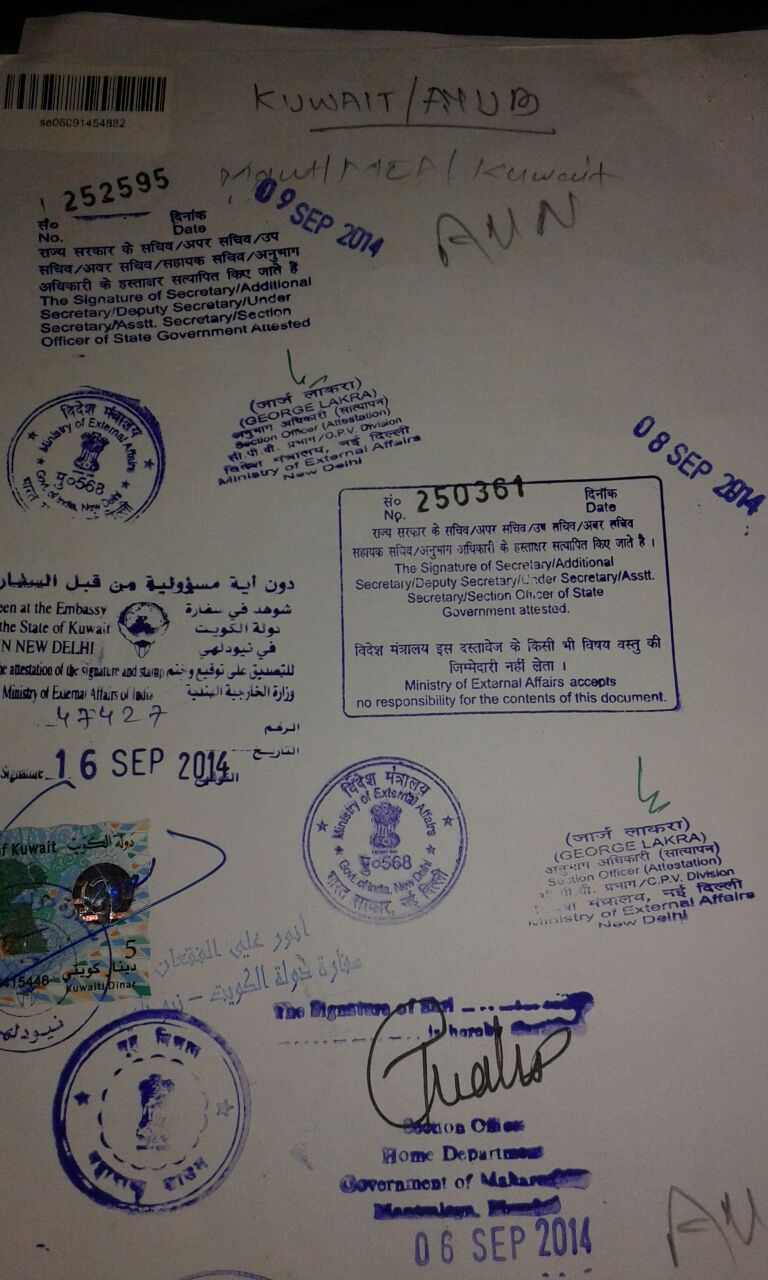 KUWAIT/
se06091454882
/MEA/Kuwait
252595
09 SEP 2014
सं० दिनांक
No. Date
राज्य सरकार के सचिव/अपर सचिव/उप
सचिव/अवर सचिव/सहायक सचिव/अनुभाग
अधिकारी के हस्ताक्षर सत्यापित किए जाते हैं
The Signature of Secretary/Additional
Secretary/Deputy Secretary/Under
Secretary/Asstt. Secretary/Section
Officer of State Government Attested
विदेश मंत्रालय
Ministry of External Affairs
मु०568
Govt. of India, New Delhi
भारत
(जार्ज लाकरा)
(GEORGE LAKRA)
अनुभाग अधिकारी (सत्यापन)
Section Officer (Attestation)
सी.पी.वी. प्रभाग/C.P.V. Division
विदेश मंत्रालय, नई दिल्ली
Ministry of External Affairs
New Delhi
08 SEP 2014
सं० 250361 दिनांक
No. Date
राज्य सरकार के सचिव/अपर सचिव/उप सचिव/अवर सचिव
सहायक सचिव/अनुभाग अधिकारी के हस्ताक्षर सत्यापित किए जाते है ।
The Signature of Secretary/Additional
Secretary/Deputy Secretary/Under Secretary/Asstt.
Secretary/Section Officer of State
Government attested.
विदेश मंत्रालय इस दस्तावेज के किसी भी विषय वस्तु की
जिम्मेदारी नहीं लेता ।
Ministry of External Affairs accepts
no responsibility for the contents of this document.
دون أية مسؤولية من قبل السفار
een at the Embassy شوهد في سفارة
the State of Kuwait دولة الكويت
IN NEW DELHI في نيودلهي
he attestation of the signature and stamp للتصديق على توقيع وختم
Ministry of External Affairs of India وزارة الخارجية الهندية
47427 الرقم
التاريخ
Signature 16 SEP 2014
विदेश मंत्रालय
Ministry of External Affairs
मु०568
Govt. of India, New Delhi
भारत सरकार, नई दिल्ली
(जार्ज लाकरा)
(GEORGE LAKRA)
अनुभाग अधिकारी (सत्यापन)
Section Officer (Attestation)
पी.वी. प्रभाग/C.P.V. Division
मंत्रालय, नई दिल्ली
Ministry of External Affairs
New Delhi
of Kuwait دولة الكويت
5
دينار كويتي
415448 Kuwaiti Dinar
أنور علي
سفارة دولة الكويت -
نيودلهي
The Signature of Shri
is hereby
गृह विभाग
Section Officer
Home Department
Government of
06 SEP 2014